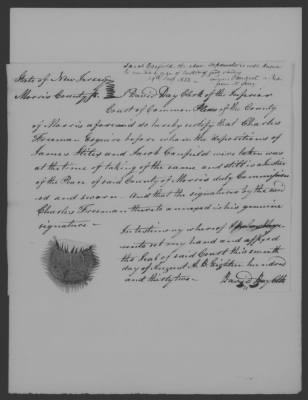 Jacob Canfield the above deponent is well known
to me
19th Augt 1832
State of New Jersey
Morris County Ss. I David Day Clerk of the Inferior
Court of Common Pleas of the County
of Morris aforesaid do hereby certify that Charles
Freeman Esquire before whom the depositions of
James Stiles and Jacob Canfield were taken was
at the time of taking of the same and still is a Justice
of the Peace of said County of Morris duly Commission
ed and sworn. And that the signatures by the said
Charles Freeman thereto annexed is his genuine
signature.
In testimony whereof I
unto set my hand and affixed
the Seal of said Court this ninth
day of August A.D. Eighteen hundred
and thirty two.
David Day Clk